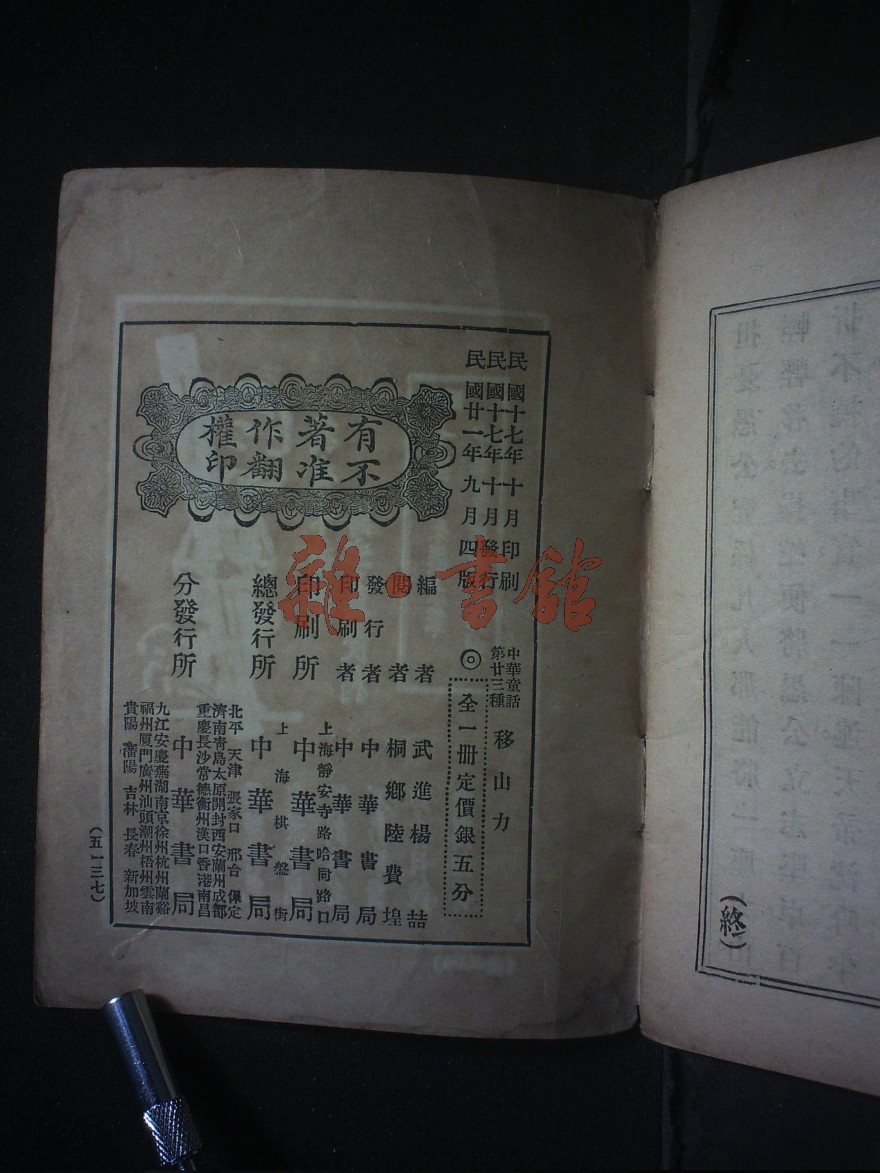 民國十七年十月印刷
民國十七年十月發行
民國廿一年九月四版
中華童話
第廿三種
移山力
◎
全一冊定價銀五分
有著作權
不准翻印
編者 武進楊喆
閱者 桐鄉陸費堭
發行者 中華書局
印刷者 中華書局
印刷所 上海靜安寺路哈同路口 中華書局
總發行所 上海棋盤街 中華書局
分發行所 中華書局
北平 天津 張家口 邢台 保定
濟南青島太原開封西安蘭州成都
重慶長沙常德衡州漢口香港南昌
九江安慶蕪湖南京徐州杭州蘭谿
福州廈門廣州汕頭潮州梧州雲南
貴陽 瀋陽 吉林 長春 新加坡
(五一三七)
(終)
雜·書館